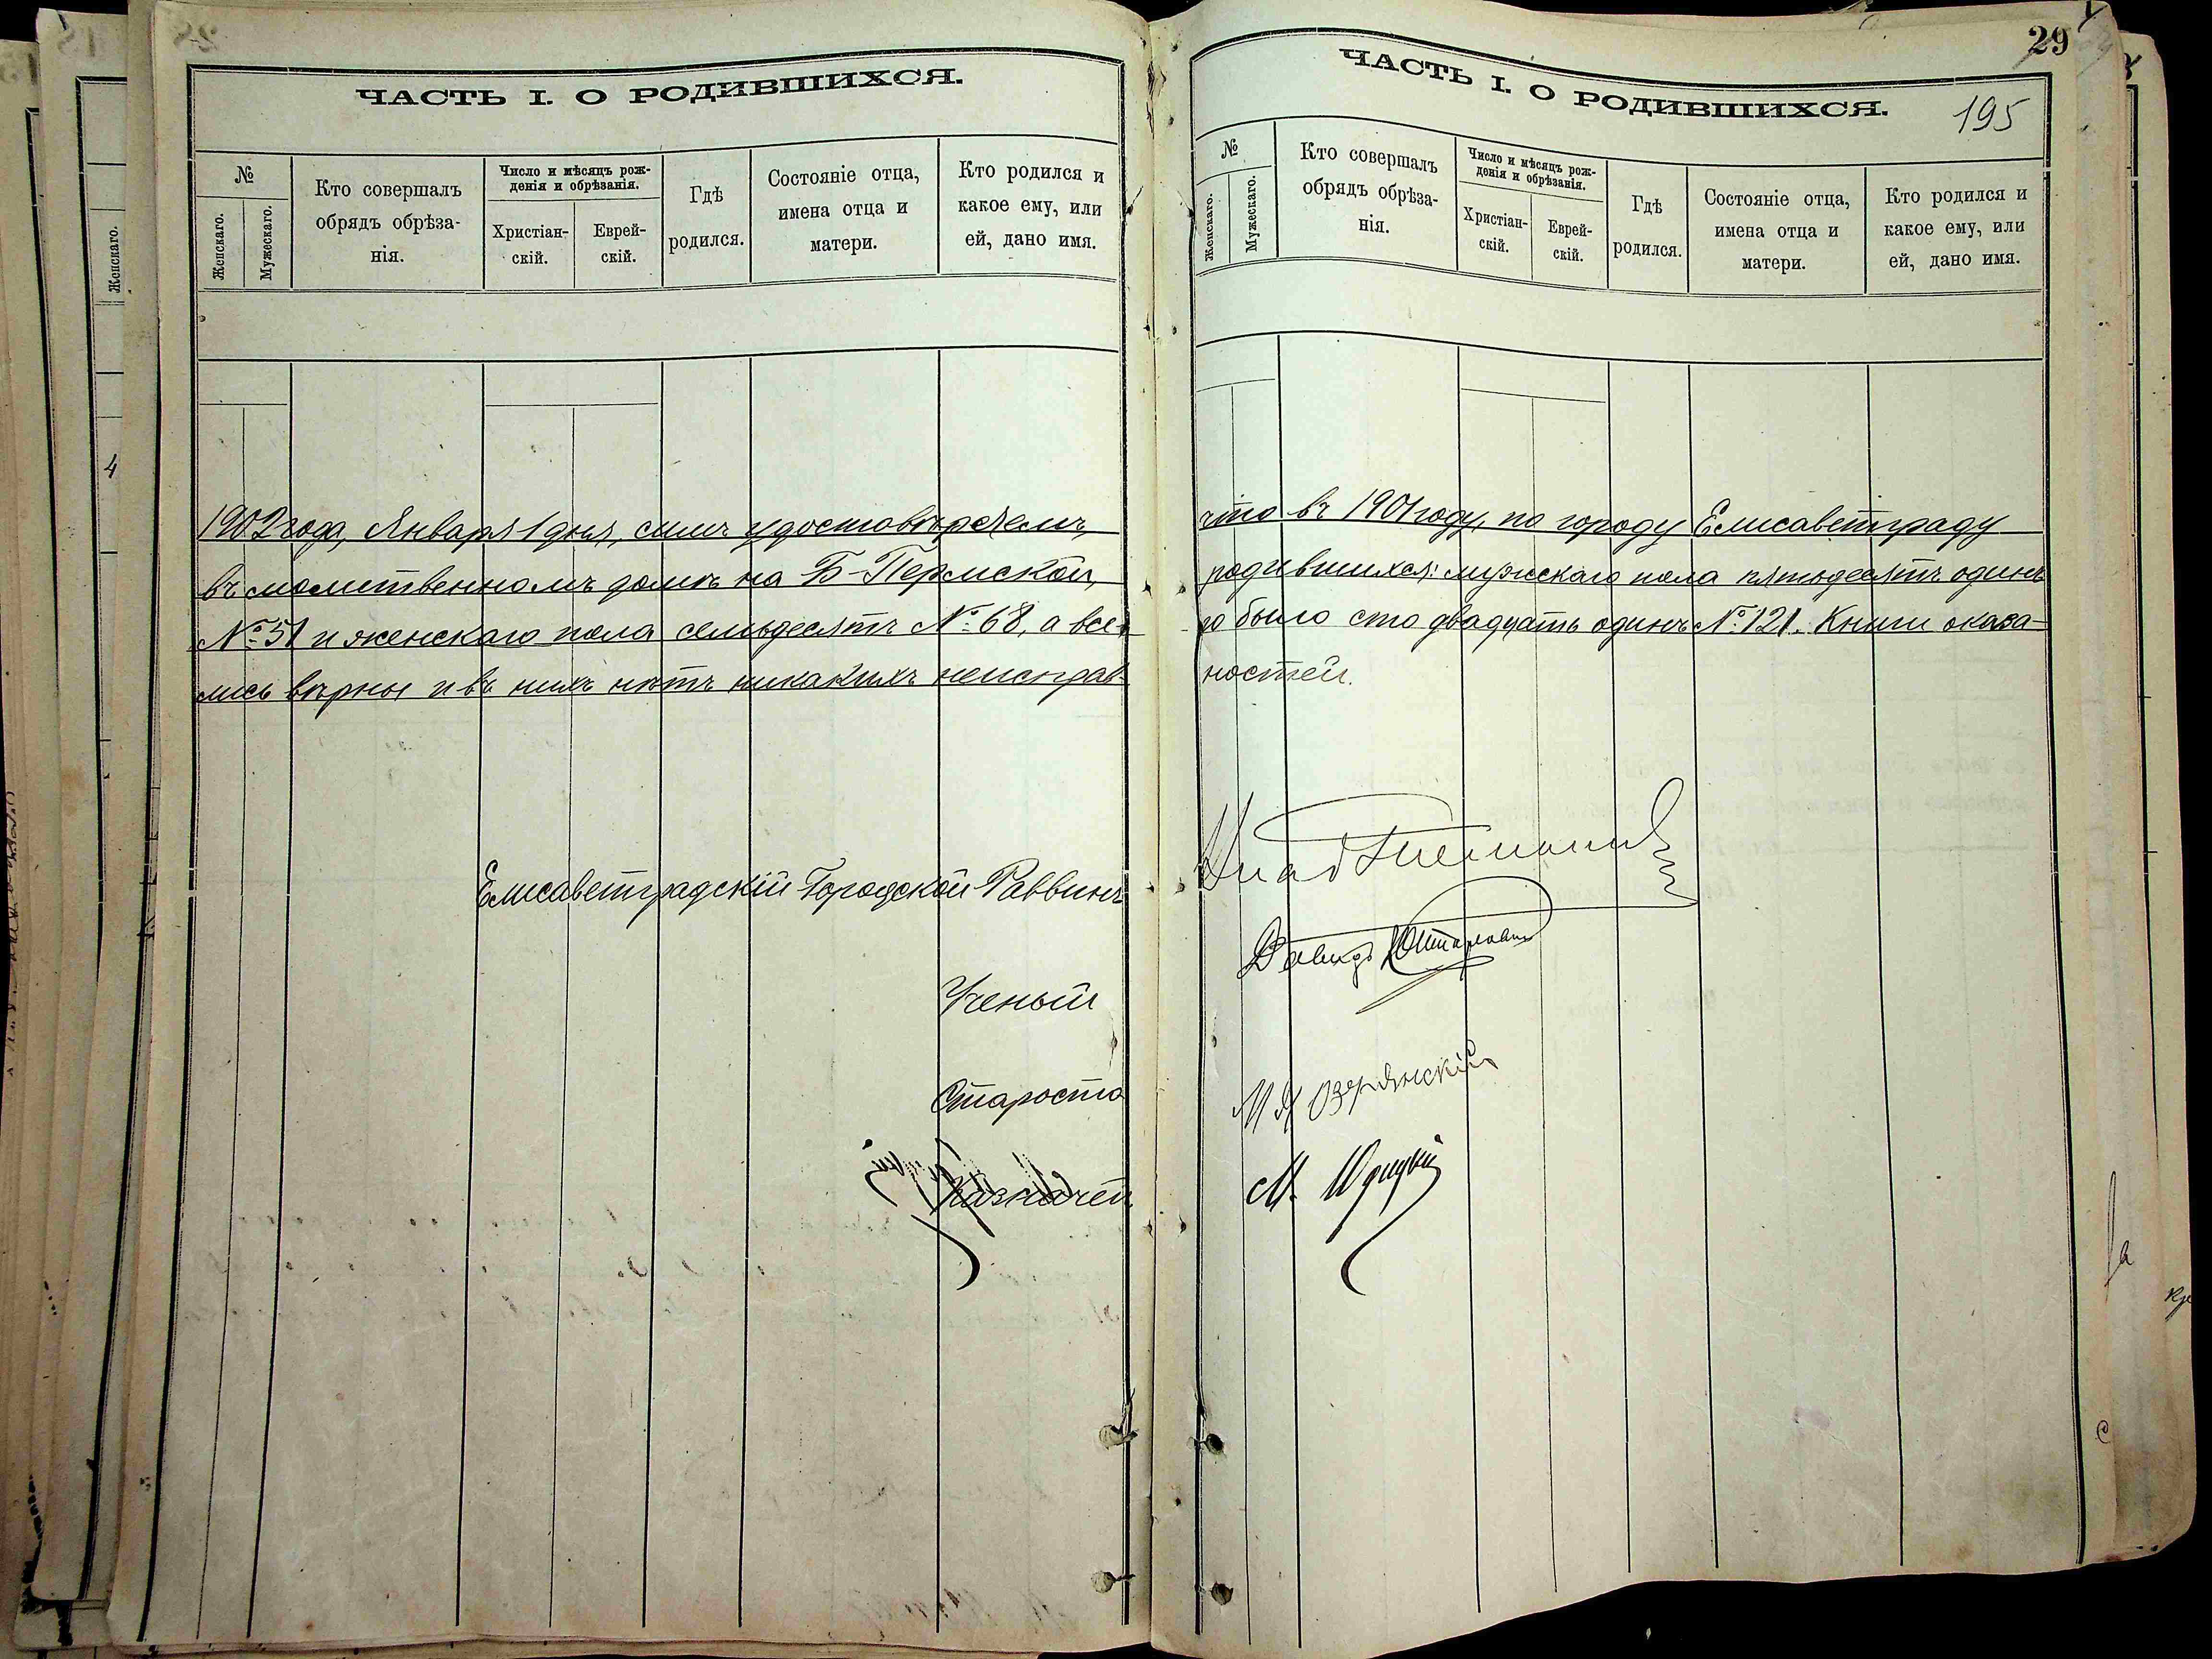 ЧАСТЬ I. О РОДИВШИХСЯ.
№
Женскаго.
Мужескаго.
Кто совершалъ
обрядъ обрѣза-
нія.
Число и мѣсяцъ рож-
денія и обрѣзанія.
Христіан-
скій.
Еврей-
скій.
Гдѣ
родился.
Состояніе отца,
имена отца и
матери.
Кто родился и
какое ему, или
ей, дано имя.
1902 года, Января 1 дня, симъ удостовѣряемъ,
въ молитвенномъ домѣ на Б-Пермской,
№ 51 и женскаго пола семьдесятъ № 68, а все-
лись вѣрны и въ нихъ нѣтъ никакихъ неисправ-
Елисаветградскій Городской Раввинъ
Ученый
Староста
Казначей
29
ЧАСТЬ I. О РОДИВШИХСЯ.
195
№
Женскаго.
Мужескаго.
Кто совершалъ
обрядъ обрѣза-
нія.
Число и мѣсяцъ рож-
денія и обрѣзанія.
Христіан-
скій.
Еврей-
скій.
Гдѣ
родился.
Состояніе отца,
имена отца и
матери.
Кто родился и
какое ему, или
ей, дано имя.
что въ 1901 году, по городу Елисаветграду
родившихся: мужскаго пола пятьдесятъ одинъ
го было сто двадцать одинъ № 121. Книги оказа-
ностей.
Давидъ
М Я Озерянскій
М. Юдицкій
Женскаго.
4